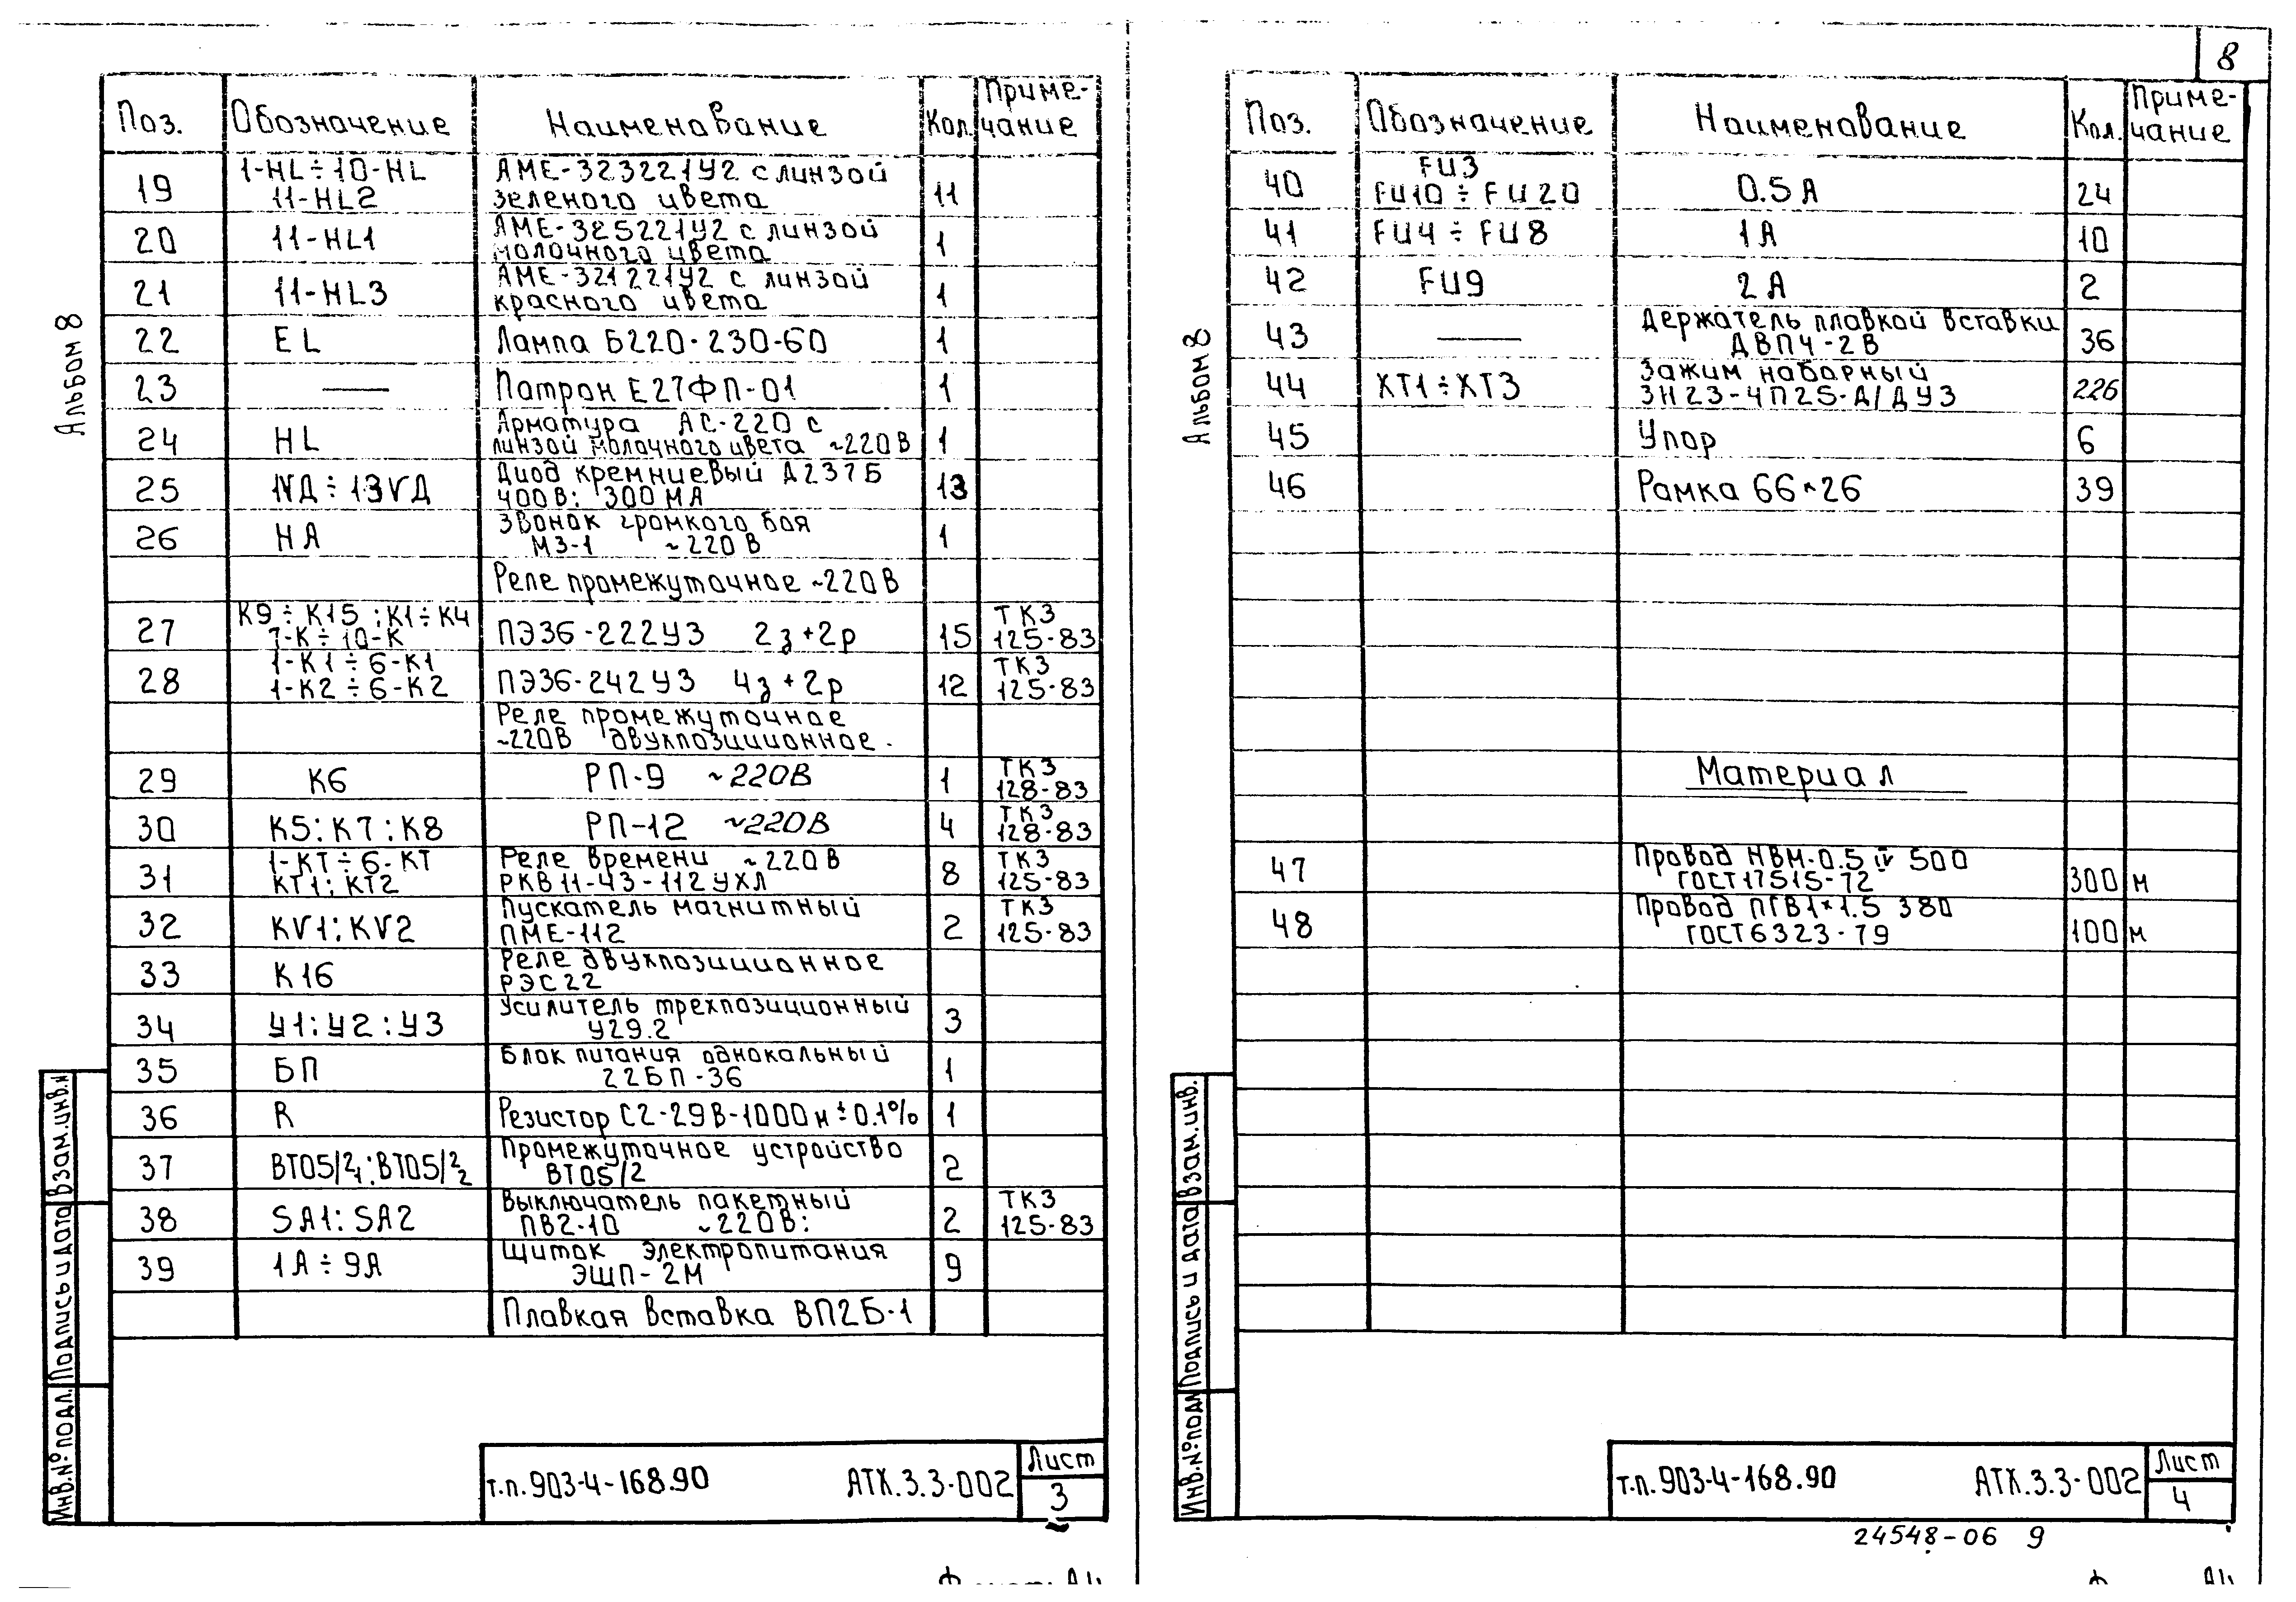 8
Альбом 8
Поз. Обозначение Наименование Кол. Приме-
чание
19 1-HL÷10-HL АМЕ-323221У2 с линзой
11-HL2 зеленого цвета 11
20 11-HL1 АМЕ-325221У2 с линзой
молочного цвета 1
21 11-HL3 АМЕ-321221У2 с линзой
красного цвета 1
22 EL Лампа Б220-230-60 1
23 — Патрон Е27ФП-01 1
24 HL Арматура АС-220 с
линзой молочного цвета ~220В 1
25 1VД÷13VД Диод кремниевый Д237Б
400В; 300МА 13
26 НА Звонок громкого боя
МЗ-1 ~220В 1
Реле промежуточное ~220В
27 К9÷К15;К1÷К4 ТКЗ
7-К÷10-К ПЭ36-222У3 2з+2р 15 125-83
28 1-К1÷6-К1 ТКЗ
1-К2÷6-К2 ПЭ36-242У3 4з+2р 12 125-83
Реле промежуточное
~220В двухпозиционное.
29 К6 РП-9 ~220В 1 ТКЗ
128-83
30 К5;К7;К8 РП-12 ~220В 4 ТКЗ
128-83
31 1-КТ÷6-КТ Реле времени ~220В ТКЗ
КТ1; КТ2 РКВ11-43-112УХЛ 8 125-83
32 KV1;KV2 Пускатель магнитный ТКЗ
ПМЕ-112 2 125-83
33 К16 Реле двухпозиционное
РЭС22
34 У1;У2;У3 Усилитель трехпозиционный
У29.2 3
35 БП Блок питания однокальный
22БП-36 1
36 R Резистор С2-29В-100Ом±0.1% 1
37 ВТ05/2₁;ВТ05/2₂ Промежуточное устройство
ВТ05/2 2
38 SA1; SA2 Выключатель пакетный ТКЗ
ПВ2-10 ~220В; 2 125-83
39 1А÷9А Щиток электропитания
ЭЩП-2М 9
Плавкая вставка ВП2Б-1
Взам.инв.N
Подпись и дата
Инв.№ подл.
т.п.903-4-168.90 АТХ.3.3-002 Лист
3
Альбом 8
Поз. Обозначение Наименование Кол. Приме-
чание
40 FU3
FU10÷FU20 0.5А 24
41 FU4÷FU8 1А 10
42 FU9 2А 2
43 — Держатель плавкой вставки
ДВП4-2В 36
44 ХТ1÷ХТ3 Зажим наборный
ЗН23-4П25-Д/ДУ3 226
45 Упор 6
46 Рамка 66×26 39
Материал
47 Провод НВМ-0.5 IV 500
ГОСТ17515-72 300 м
48 Провод ПГВ1×1.5 380
ГОСТ6323-79 100 м
Взам.инв.
Подпись и дата
Инв.№подл
т.п.903-4-168.90 АТХ.3.3-002 Лист
4
24548-06 9